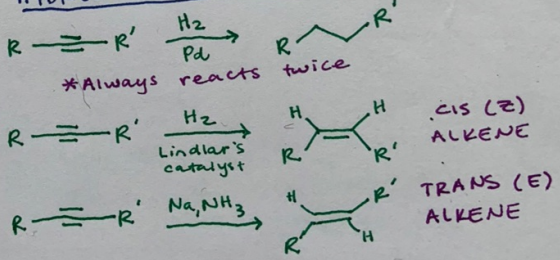 R R' H₂ Pd R R'
*Always reacts twice
R R' H₂ Lindlar's catalyst H H R R' CIS (Z) ALKENE
R R' Na, NH₃ H R' R H TRANS (E) ALKENE